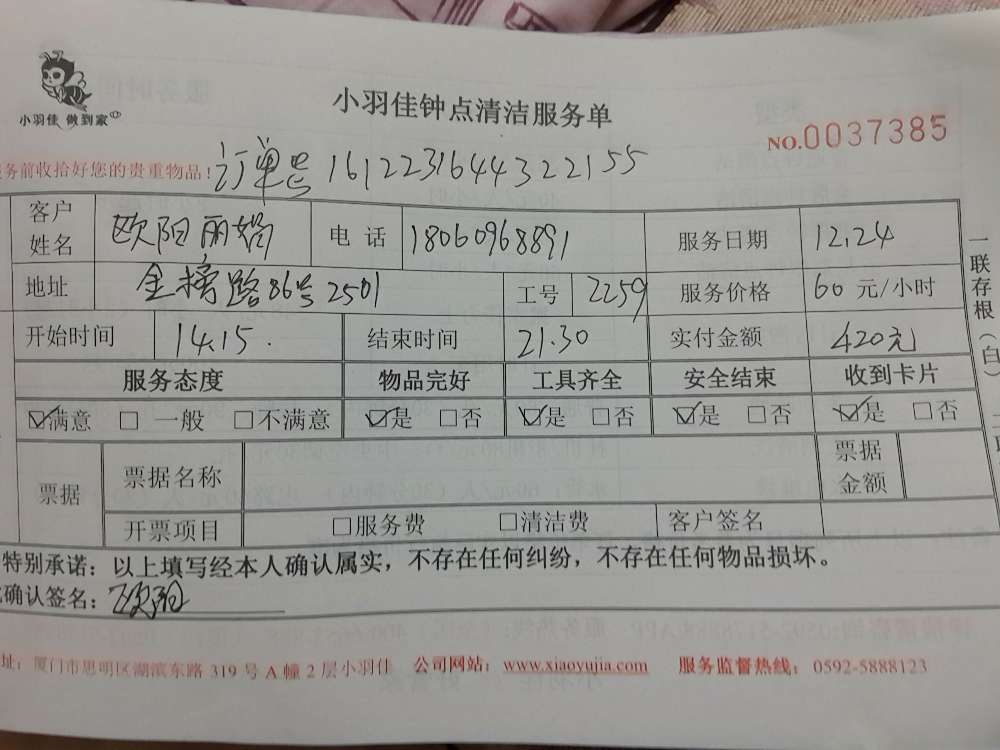 小羽佳 做到家
小羽佳钟点清洁服务单
NO.0037385
务前收拾好您的贵重物品！订单号 1612231644322155
客户姓名 欧阳丽娟 电话 18060968891 服务日期 12.24
地址 金榜路86号2501 工号 2259 服务价格 60 元/小时
开始时间 14.15. 结束时间 21.30 实付金额 420元
服务态度 物品完好 工具齐全 安全结束 收到卡片
☑满意 □ 一般 □不满意 ☑是 □否 ☑是 □否 ☑是 □否 ☑是 □否
票据 票据名称 票据金额
开票项目 □服务费 □清洁费 客户签名
特别承诺：以上填写经本人确认属实，不存在任何纠纷，不存在任何物品损坏。
确认签名：欧阳
址：厦门市思明区湖滨东路 319 号 A 幢 2 层小羽佳 公司网站：www.xiaoyujia.com 服务监督热线：0592-5888123
一联存根（白）